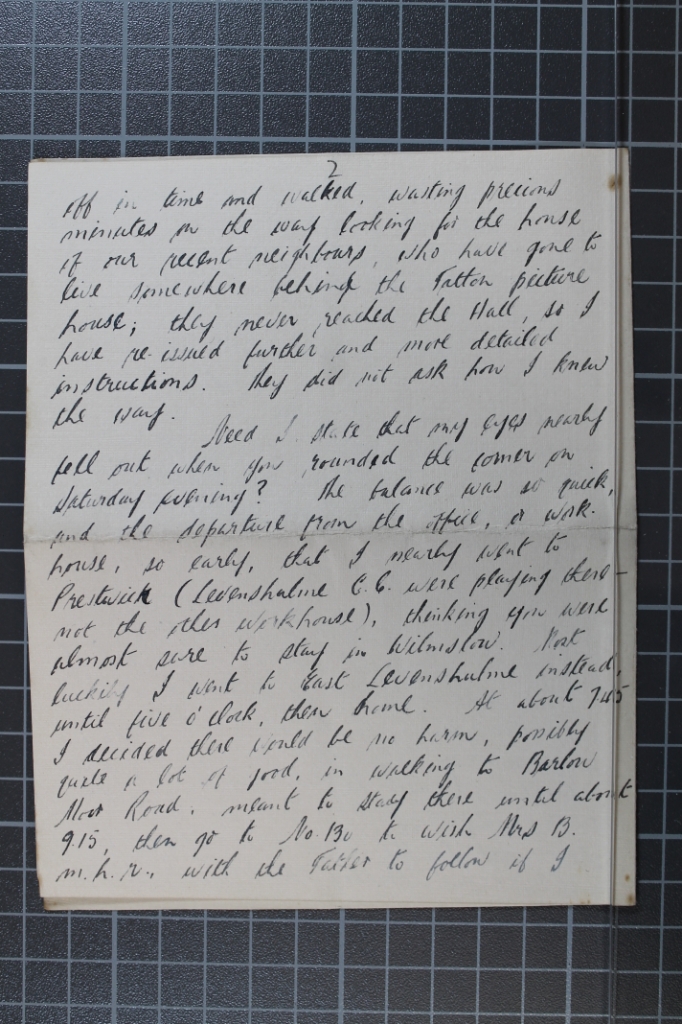 2
off in time and walked, wasting precious
minutes on the way looking for the house
of our recent neighbours, who have gone to
live somewhere behind the Tatton picture
house; they never reached the Hall, so I
have re-issued further and more detailed
instructions. They did not ask how I knew
the way.
Need I state that my eyes nearly
fell out when you rounded the corner on
Saturday evening? The balance was so quick,
and the departure from the office, or work-
house, so early, that I nearly went to
Prestwich (Levenshulme C.C. were playing there –
not the other workhouse), thinking you were
almost sure to stay in Wilmslow. Most
luckily I went to East Levenshulme instead,
until five o'clock, then home. At about 7.45
I decided there would be no harm, possibly
quite a lot of good, in walking to Barlow
Moor Road, meant to stay there until about
9.15, then go to No. 130 to wish Mrs B.
m.h.r., with the to follow if I